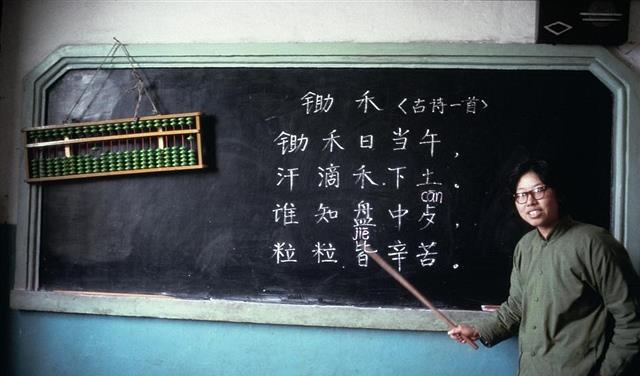 锄 禾 〈古诗一首〉
锄 禾 日 当 午，
汗 滴 禾 下 土。
cān
谁 知 盘 中 歺，
jiē
粒 粒 皆 辛 苦。